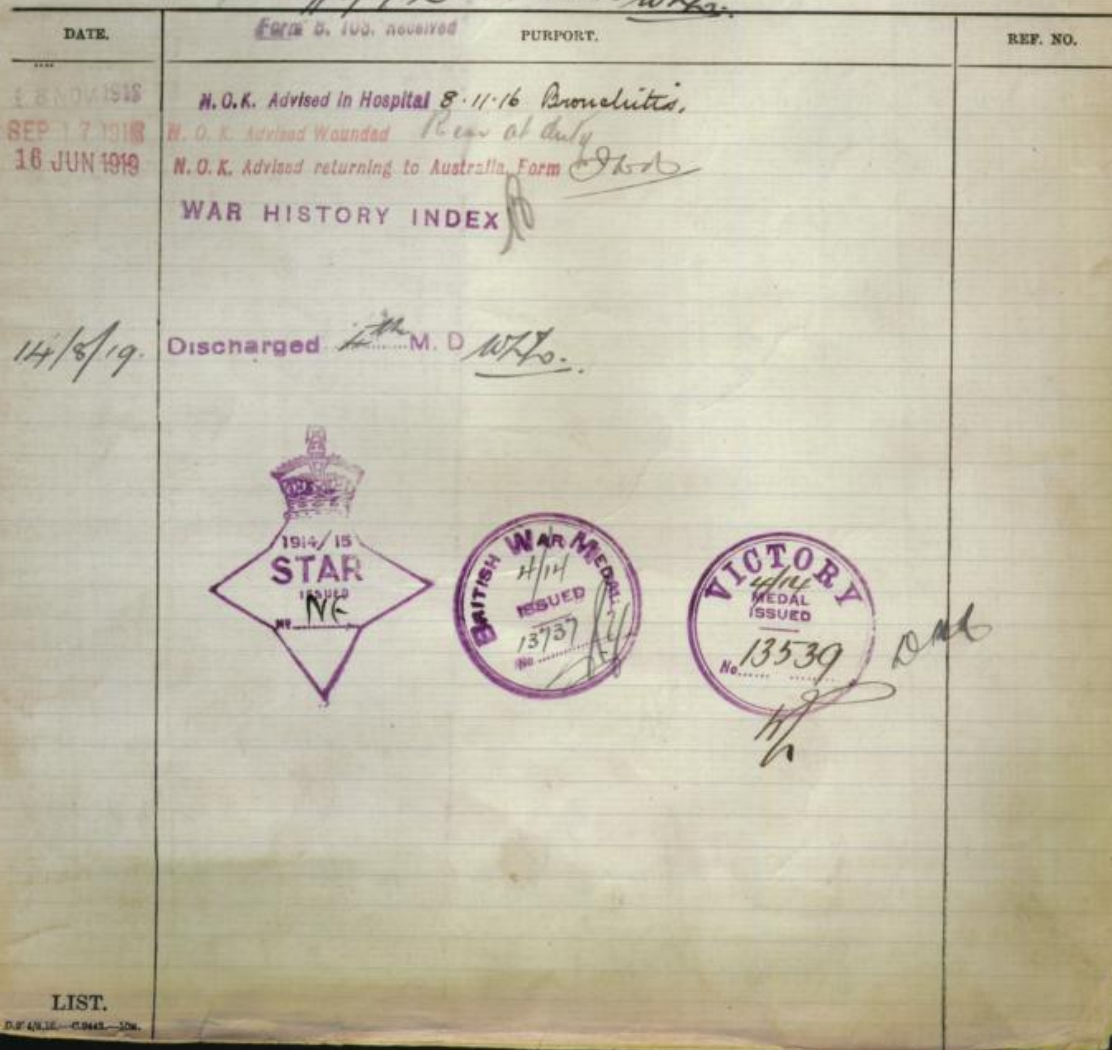 Form B. 103. Received
DATE. PURPORT. REF. NO.
NOV 1916 N.O.K. Advised in Hospital 8.11.16 Bronchitis.
SEP 17 1918 N.O.K. Advised Wounded Rem at duty
16 JUN 1919 N.O.K. Advised returning to Australia, Form
WAR HISTORY INDEX
14/8/19. Discharged 4th M. D
1914/15
STAR
ISSUED
No NE
BRITISH WAR MEDAL
4/14
ISSUED
13737
No
VICTORY
4/14
MEDAL
ISSUED
No 13539
LIST.